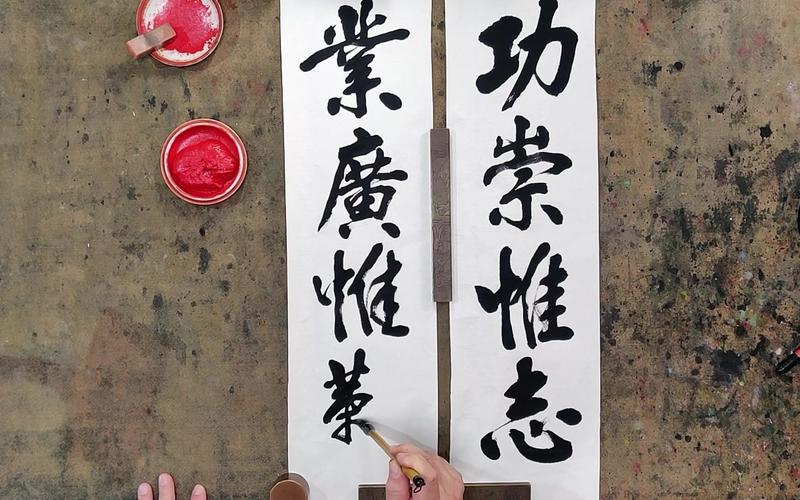 功崇惟志
業廣惟